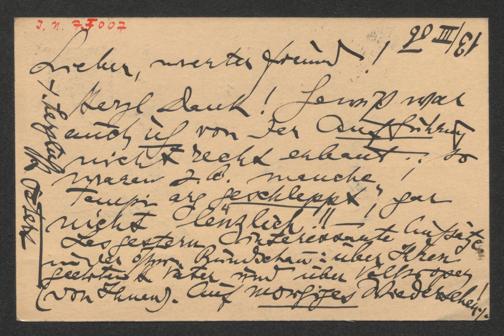 J. N. 77007
13/III 06
Lieber, werter Freund!
Herzl. Dank! Gewiß war
auch ich von der Aufführung
nicht recht erbaut: so
waren z.B. manche
Tempi arg geschleppt, gar
nicht !! —
Las gestern interessante Aufsätze
in der Rundschau: über Ihren
Vater und über Volksoper
(von Ihnen). Auf morgiges Wiedersehen.